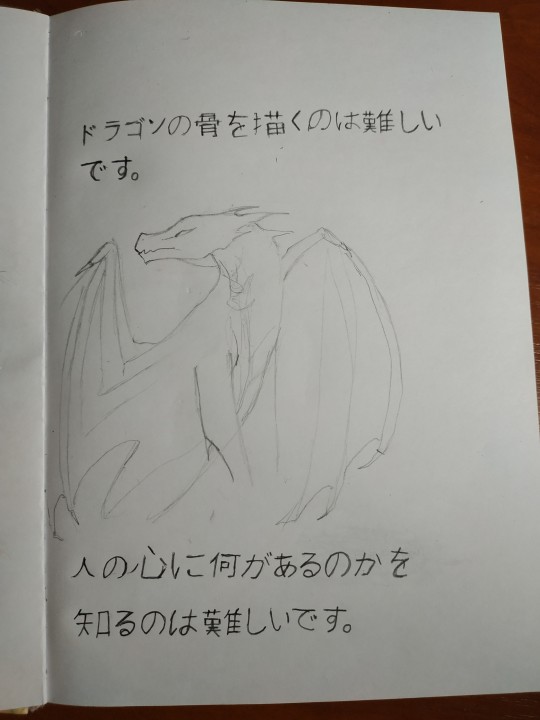 ドラゴンの骨を描くのは難しい
です。
人の心に何があるのかを
知るのは難しいです。